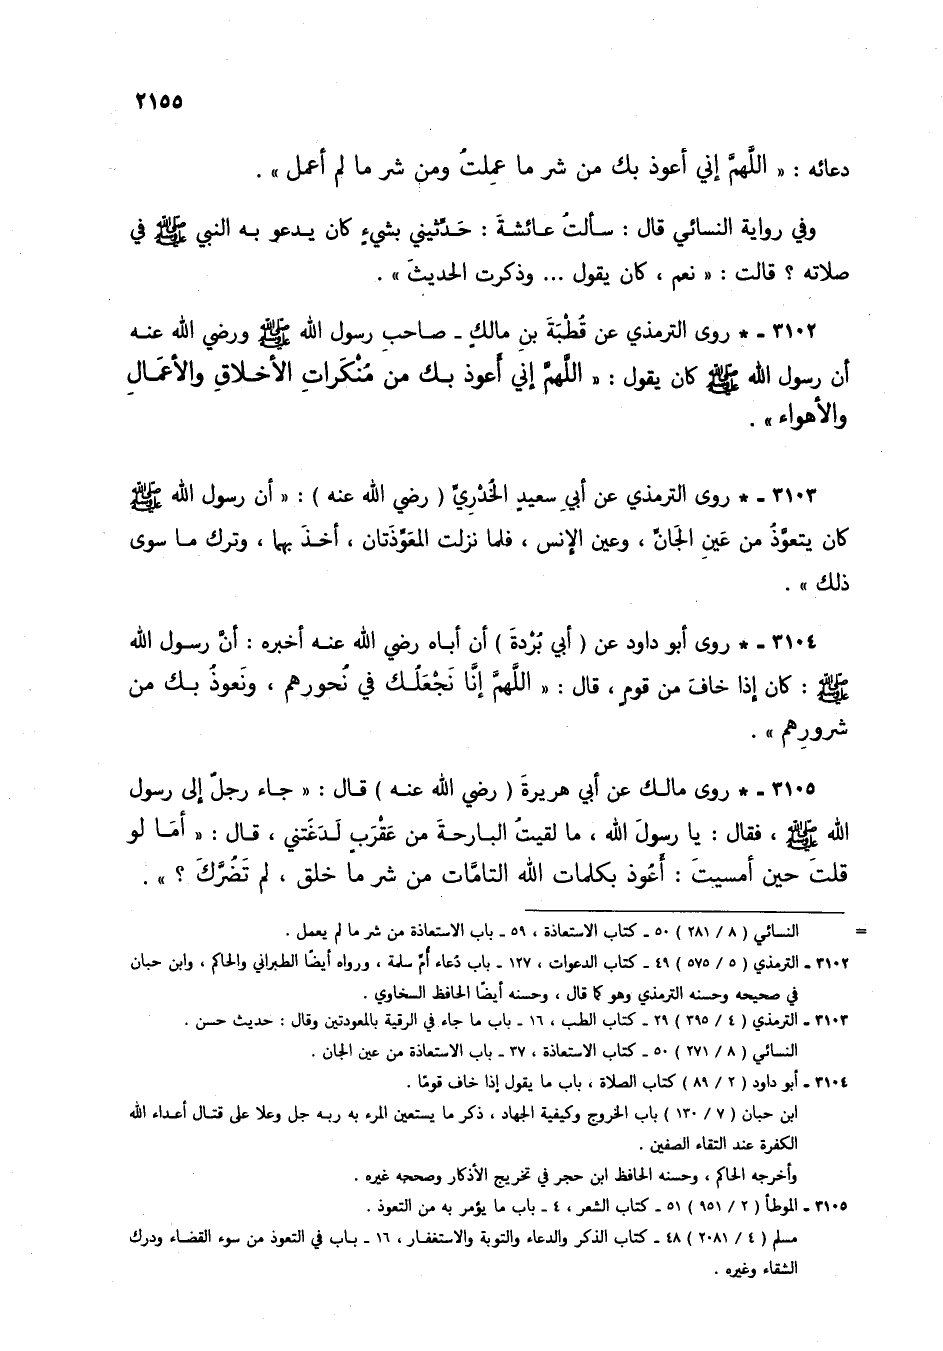 ٢١٥٥
دعائه : « اللَّهمَّ إني أعوذ بك من شر ما عمِلتُ ومن شر ما لم أعمل » .
وفي رواية النسائي قال : سألتُ عـائشـةَ : حَـدِّثيني بشيءٍ كان يـدعـو بـه النبي ﷺ في
صلاته ؟ قالت : « نعم ، كان يقول ... وذكرت الحديثَ » .
٣١٠٢ - * روى الترمذي عن قُطْبَةَ بن مالكٍ - صـاحبِ رسول الله ﷺ ورضي الله عنـه
أن رسول الله ﷺ كان يقول : « اللَّهمَّ إني أعوذ بـك من مُنْكَراتِ الأخـلاقِ والأعمَـالِ
والأهواء » .
٣١٠٣ - * روى الترمذي عن أبي سعيدٍ الخُدْرِيِّ ( رضي الله عنه ) : « أن رسول الله ﷺ
كان يتعوَّذُ من عَينِ الجَانِّ ، وعين الإنس ، فلما نزلت المعَوِّذَتان ، أخـذَ بها ، وترك مـا سوى
ذلك » .
٣١٠٤ - * روى أبو داود عن ( أبي بُرْدةَ ) أن أبـاه رضي الله عنـه أخبره : أنَّ رسـول الله
ﷺ : كان إذا خافَ من قومٍ ، قال : « اللَّهمَّ إنَّا نَجْعَلُـك في نُحورهم ، ونَعوذُ بـك من
شرورِهم » .
٣١٠٥ - * روى مالـك عن أبي هريرةَ ( رضي الله عنـه ) قـال : « جـاء رجلٌ إلى رسول
الله ﷺ ، فقال : يا رسولَ الله ، ما لقيتُ البـارحـةَ من عَقْرَبٍ لَـدَغَتني ، قـال : « أمَـا لو
قلتَ حين أمسيتَ : أَعُوذ بكلمات الله التامَّات من شر ما خلق ، لم تَضُرَّكَ ؟ » .
= النسائي ( ٨ / ٢٨١ ) ٥٠ - كتاب الاستعاذة ، ٥٩ - باب الاستعاذة من شر ما لم يعمل .
٣١٠٢ - الترمذي ( ٥ / ٥٧٥ ) ٤٩ - كتاب الدعوات ، ١٢٧ - باب دُعاء أُمّ سلمة ، ورواه أيضًا الطبراني والحاكم ، وابن حبان
في صحيحه وحسنه الترمذي وهو كما قال ، وحسنه أيضًا الحافظ السخاوي .
٣١٠٣ - الترمذي ( ٤ / ٣٩٥ ) ٢٩ - كتاب الطب ، ١٦ - باب ما جاء في الرقية بالمعوذتين وقال : حديث حسن .
النسائي ( ٨ / ٢٧١ ) ٥٠ - كتاب الاستعاذة ، ٣٧ - باب الاستعاذة من عين الجان .
٣١٠٤ - أبو داود ( ٢ / ٨٩ ) كتاب الصلاة ، باب ما يقول إذا خاف قومًا .
ابن حبان ( ٧ / ١٣٠ ) باب الخروج وكيفية الجهاد ، ذكر ما يستعين المرء به ربـه جل وعلا على قتـال أعـداء الله
الكفرة عند التقاء الصفين .
وأخرجه الحاكم ، وحسنه الحافظ ابن حجر في تخريج الأذكار وصححه غيره .
٣١٠٥ - الموطأ ( ٢ / ٩٥١ ) ٥١ - كتاب الشعر ، ٤ - باب ما يؤمر به من التعوذ .
مسلم ( ٤ / ٢٠٨١ ) ٤٨ - كتاب الذكر والدعاء والتوبة والاستغفـار ، ١٦ - بـاب في التعوذ من سوء القضـاء ودرك
الشقاء وغيره .